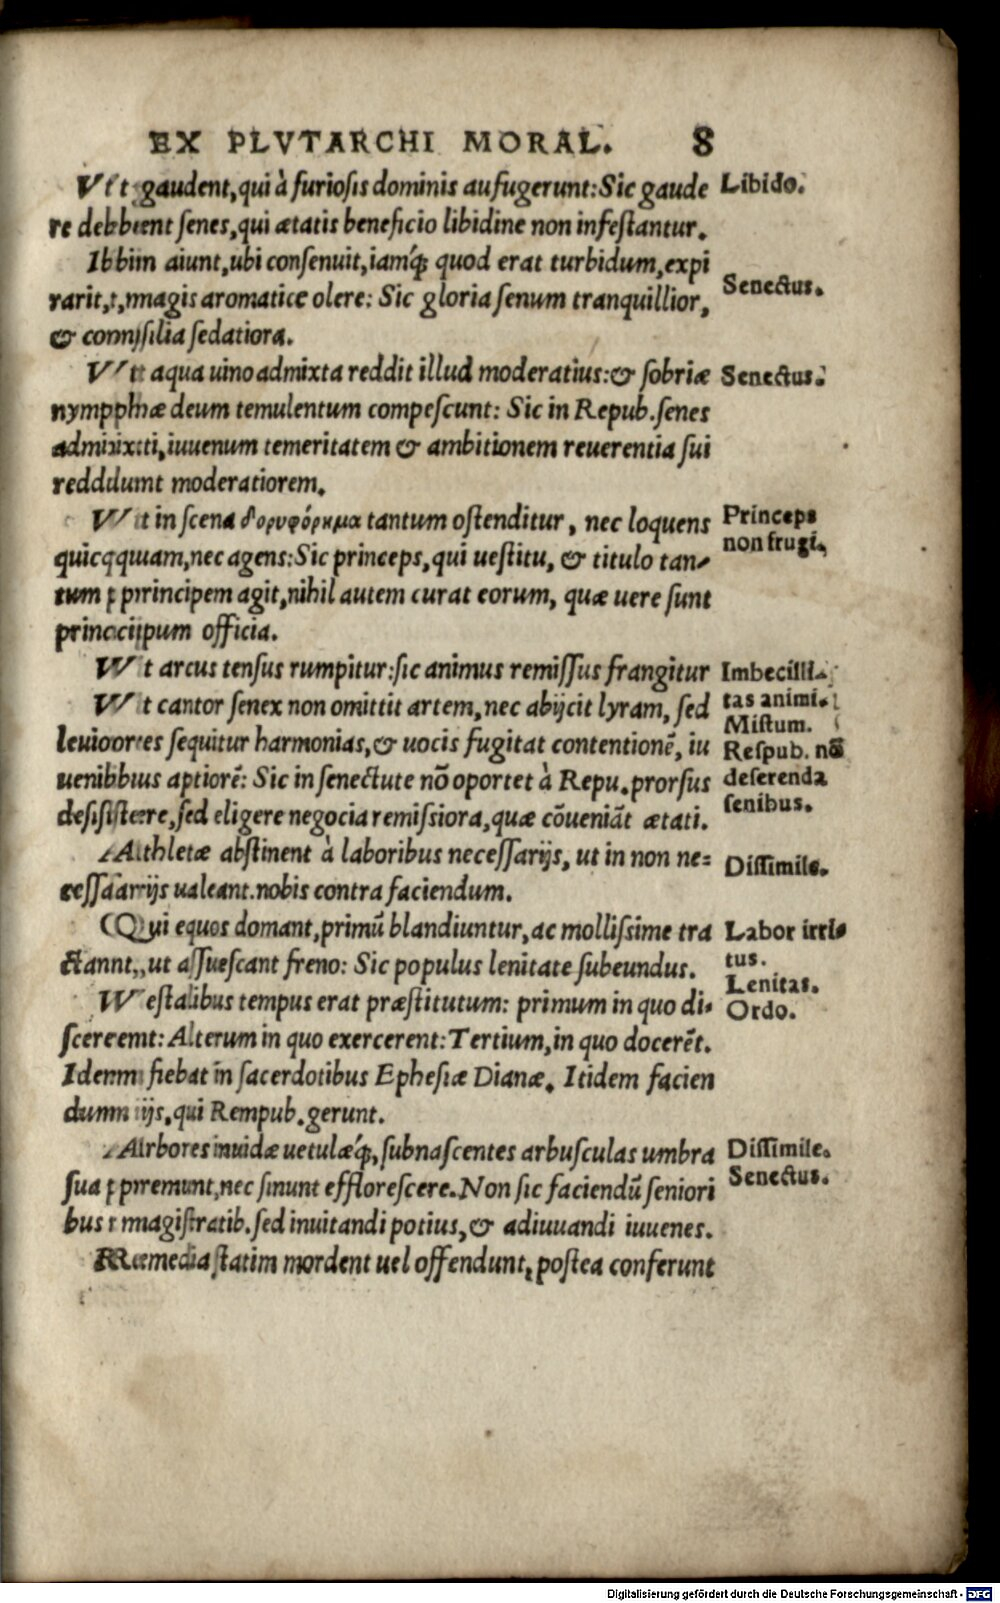 EX PLVTARCHI MORAL. 8
Vt gaudent, qui à furiosis dominis aufugerunt: Sic gaude Libido.
re debent senes, qui ætatis beneficio libidine non infestantur.
Ibim aiunt, ubi consenuit, iamq́; quod erat turbidum, expi
rarit, magis aromatice olere: Sic gloria senum tranquillior, Senectus.
& consilia sedatiora.
Vt aqua uino admixta reddit illud moderatius: & sobriæ Senectus.
nymphæ deum temulentum compescunt: Sic in Repub. senes
admixti, iuuenum temeritatem & ambitionem reuerentia sui
reddunt moderatiorem.
Vt in scena δορυφόρημα tantum ostenditur, nec loquens Princeps
quicquam, nec agens: Sic princeps, qui uestitu, & titulo tan- non frugi.
tum principem agit, nihil autem curat eorum, quæ uere sunt
principum officia.
Vt arcus tensus rumpitur: sic animus remissus frangitur Imbecilli-
Vt cantor senex non omittit artem, nec abijcit lyram, sed tas animi.
Mistum.
leuiores sequitur harmonias, & uocis fugitat contentionē, iu Respub. nō
uenibus aptiorē: Sic in senectute nō oportet à Repu. prorsus deserenda
desistere, sed eligere negocia remissiora, quæ cōueniāt ætati. senibus.
Athletæ abstinent à laboribus necessarijs, ut in non ne= Dissimile.
cessarijs ualeant. nobis contra faciendum.
Qui equos domant, primū blandiuntur, ac mollissime tra Labor irri-
ctant, ut assuescant freno: Sic populus lenitate subeundus. tus.
Lenitas.
Vestalibus tempus erat præstitutum: primum in quo di- Ordo.
scerent: Alterum in quo exercerent: Tertium, in quo docerēt.
Idem fiebat in sacerdotibus Ephesiæ Dianæ. Itidem facien
dum ijs, qui Rempub. gerunt.
Arbores inuidæ uetulæq́;, subnascentes arbusculas umbra Dissimile.
sua premunt, nec sinunt efflorescere. Non sic faciendū seniori Senectus.
bus magistratib. sed inuitandi potius, & adiuuandi iuuenes.
Remedia statim mordent uel offendunt, postea conferunt
Digitalisierung gefördert durch die Deutsche Forschungsgemeinschaft - DFG